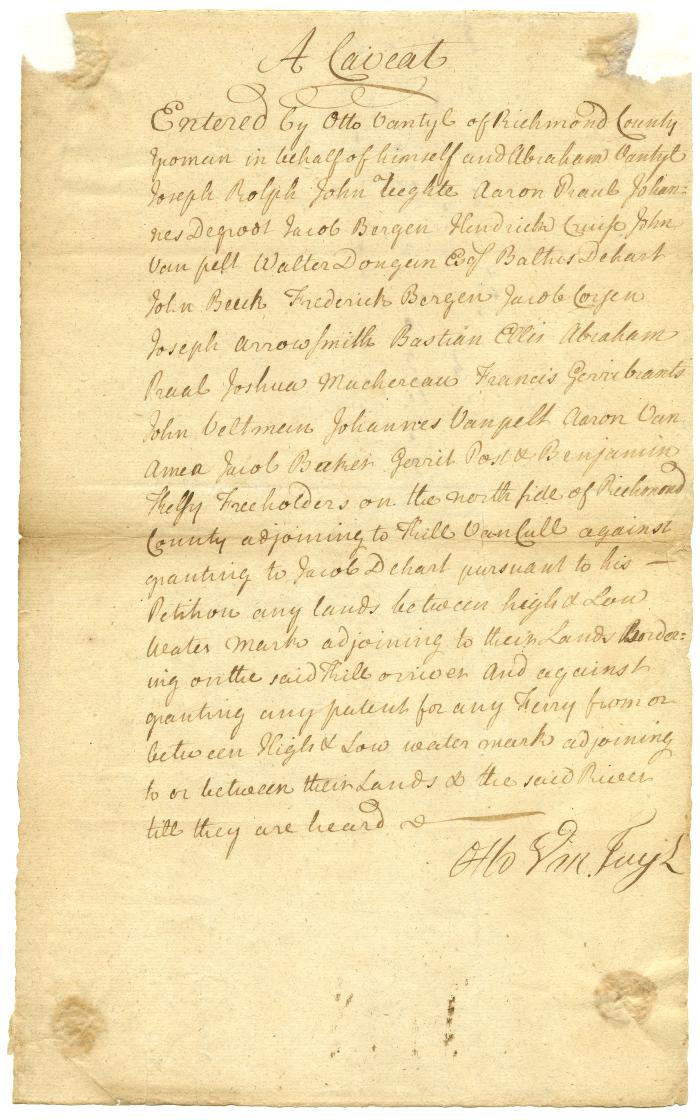 A Caveat
Entered by Otto Vantyl of Richmond County
yoman in behalf of himself and Abraham Vantyl
Joseph Rolph John Veghte Aaron Praul Johan=
nes Degroot Jacob Bergen Hendrick Cruise John
Van pelt Walter Dongein Esqr Baltus Dehart
John Beek Frederick Bergen Jacob Corsen
Joseph arrowsmith Bastian Ellis Abraham
Praal Joshua Machereau Francis Gerribrants
John Veltmein Johannes Vanpelt Aaron Van
Amea Jacob Beeker Gerrit Post & Benjamin
Freeholders on the north side of Richmond
County adjoining to Kill Van Cull against
granting to Jacob Dehart pursuant to his —
Petition any lands between high & Low
water mark adjoining to their Lands Border=
ing on the said Kill or river And against
granting any patent for any Ferry from or
between High & Low water mark adjoining
to or between their Lands & the said River
till they are heard &
Otto V:m. Tuyl